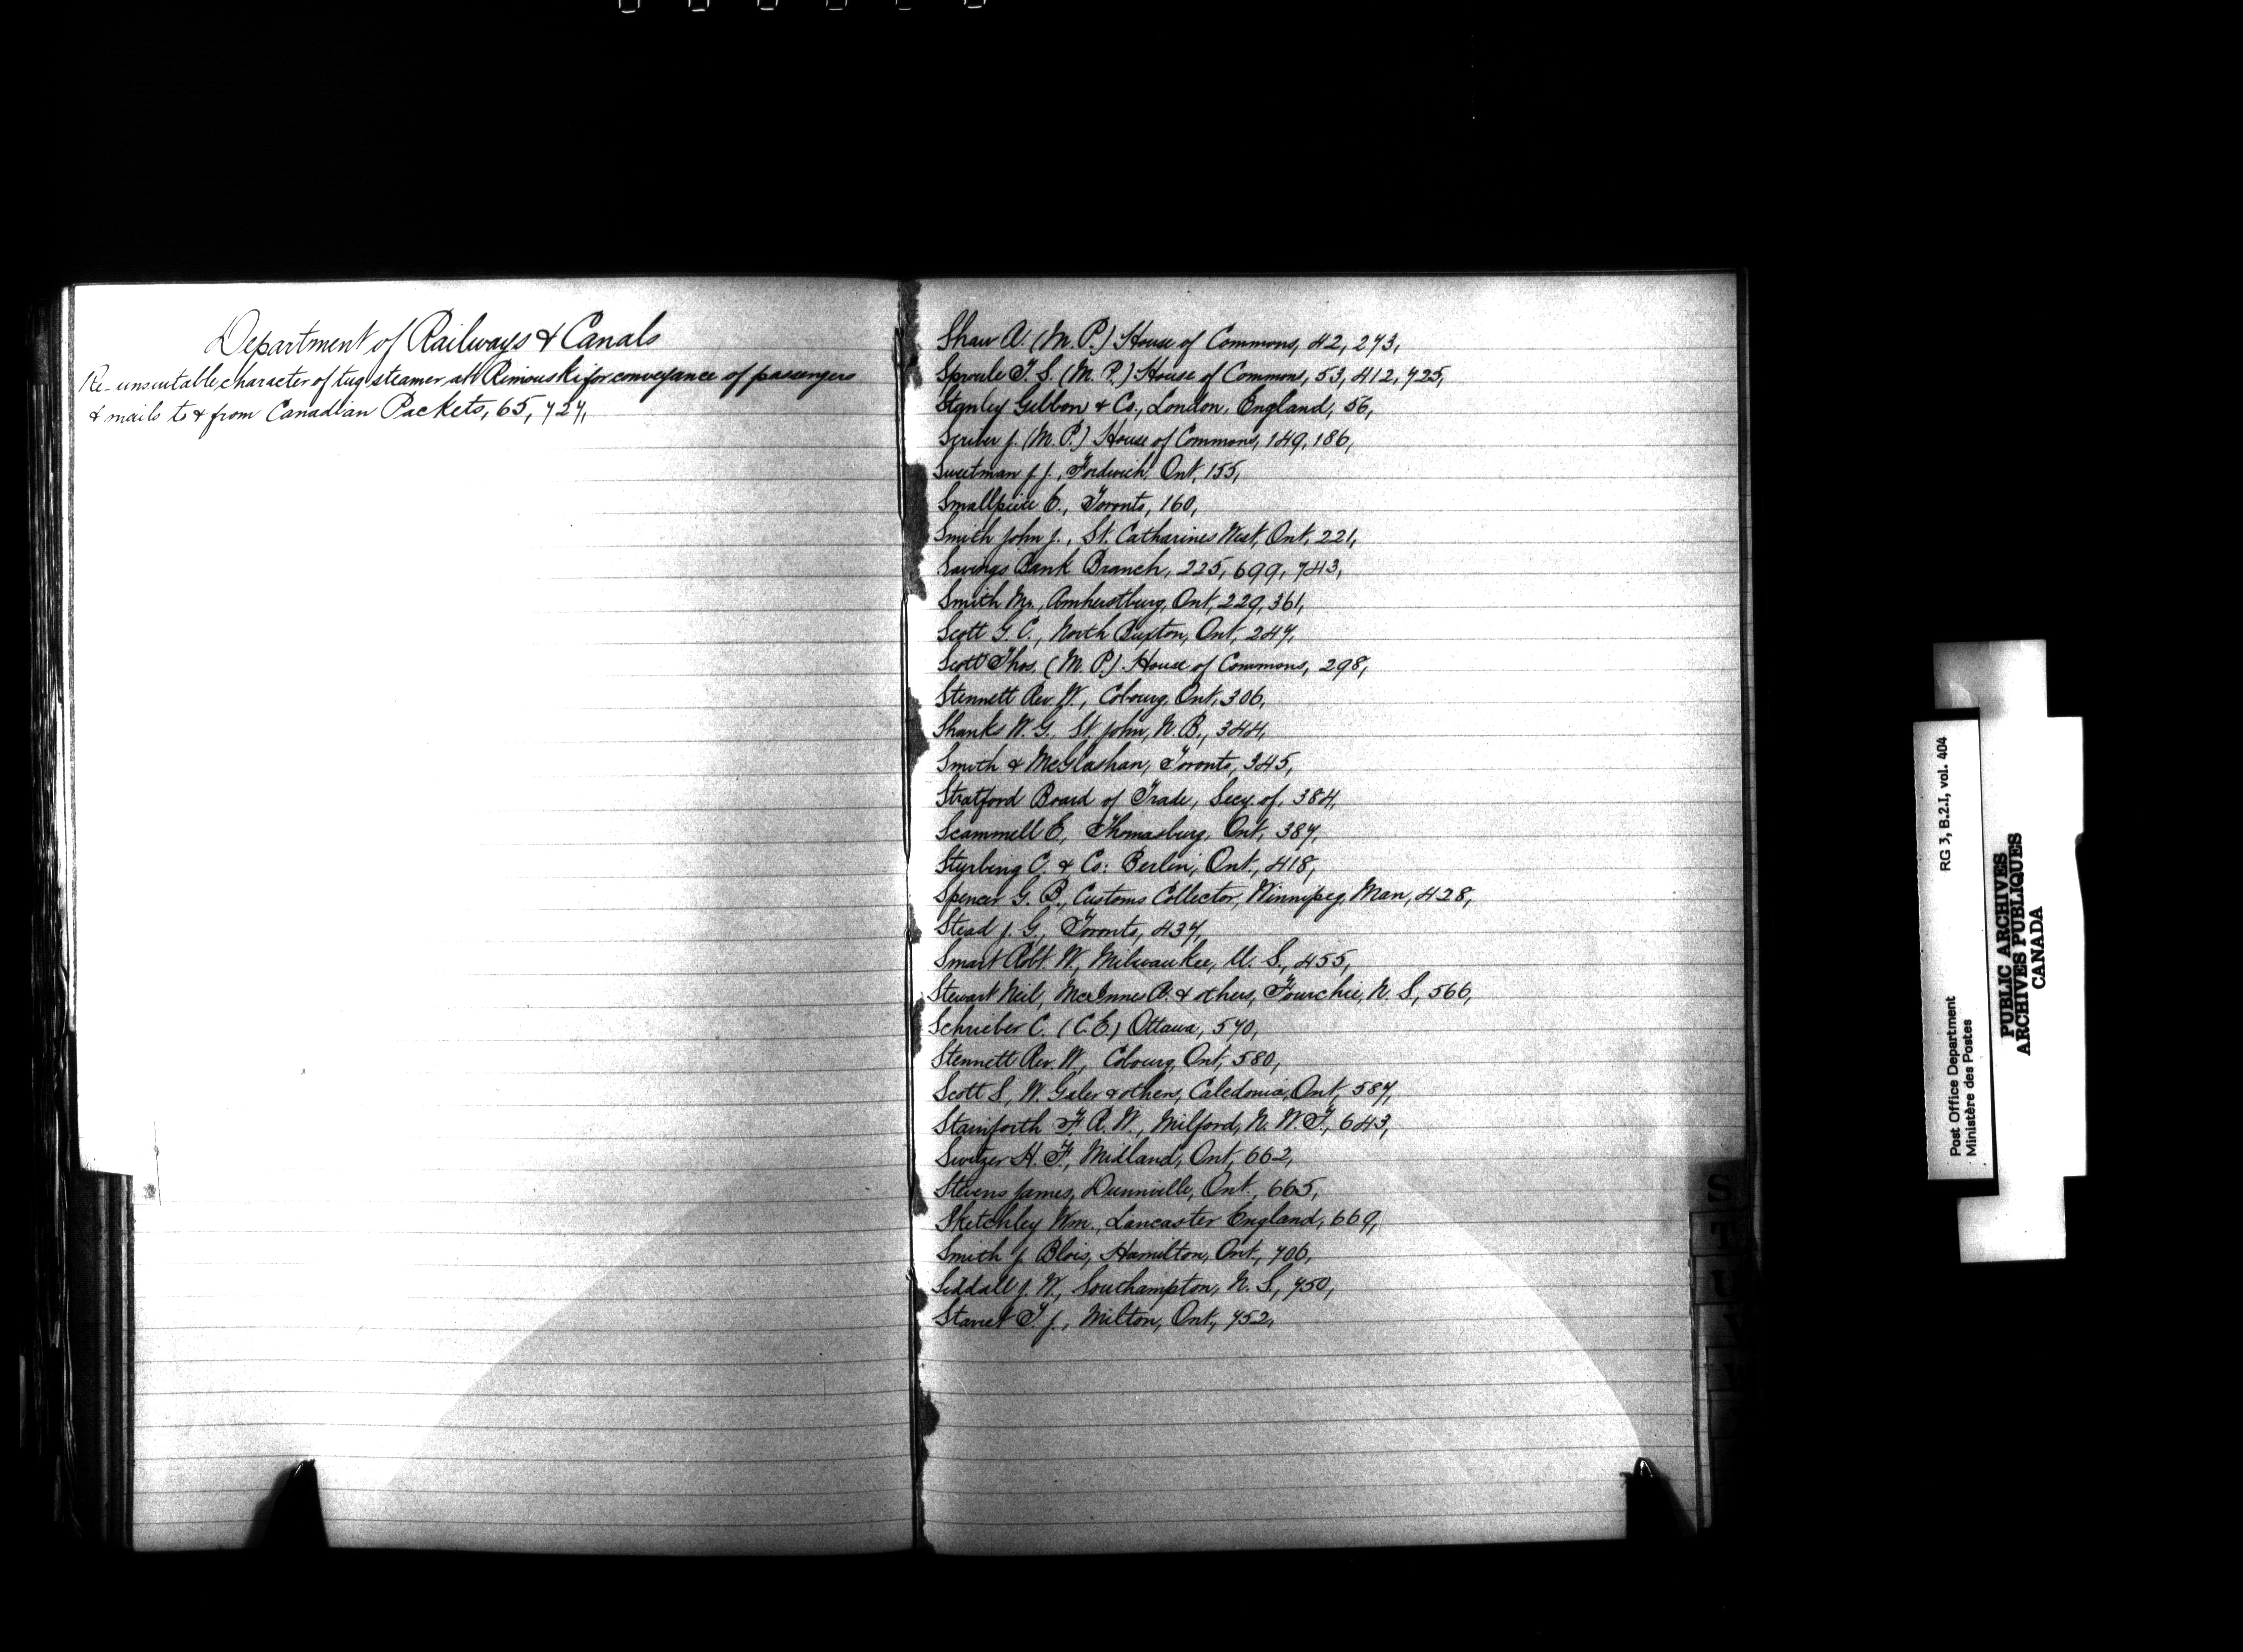 Department of Railways & Canals
Re-unsuitable character of tug steamer at Rimouski for conveyance of passengers
& mails to & from Canadian Packets, 65, 727,
Shaw A. (M. P.) House of Commons, 42, 273,
Sproule T. S. (M. P.) House of Commons, 53, 412, 725,
Stanley Gibbon & Co., London, England, 56,
Scriver J. (M. P.) House of Commons, 149, 186,
Sweetman J. J., Fordwich, Ont, 155,
Smallpiece E., Toronto, 160,
Smith John J., St. Catharines West, Ont, 221,
Savings Bank Branch, 225, 699, 743,
Smith Mr., Amherstburg, Ont, 229, 361,
Scott G. C., North Buxton, Ont, 247,
Scott Thos. (M. P.) House of Commons, 298,
Stennett Rev W., Cobourg, Ont, 306,
Shanks W. G. St. John, N. B., 344,
Smith & McGlashan, Toronto, 345,
Stratford Board of Trade, Secy. of, 384,
Scammell E., Thomasburg, Ont, 387,
Sturbing C. & Co: Berlin, Ont., 418,
Spencer G. B., Customs Collector, Winnipeg, Man, 428,
Stead J. G., Toronto, 437,
Smart Robt. W, Milwaukee, U. S., 455,
Stewart Neil, McInnes A. & others, Fourchie, N. S, 566,
Schrieber C. (C. E.) Ottawa, 570,
Stennett Rev. W, Cobourg, Ont, 580,
Scott S, W. Galer & others, Caledonia, Ont, 587,
Stainforth F. R. W., Milford, N. W. T., 643,
Switzer H. F., Midland, Ont, 662,
Stevens James, Dunnville, Ont., 665,
Sketchley Wm., Lancaster England, 669,
Smith J. Blois, Hamilton, Ont., 706,
Siddall J. W., Southampton, N. S., 750,
Starret T. J., Milton, Ont., 752,
S
T
U
V
W
Post Office Department
Ministère des Postes
RG 3, B.2.I, vol. 404
PUBLIC ARCHIVES
ARCHIVES PUBLIQUES
CANADA